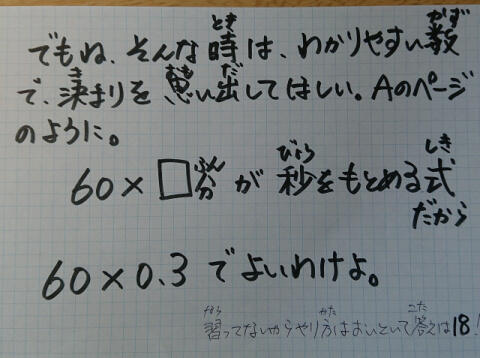 でもね、そんな時は、わかりやすい数
で、決まりを思い出してほしい。Aのページ
のように。
60×□分が秒をもとめる式
だから
60×0.3でよいわけよ。
習ってないからやり方はおいといて答えは18!